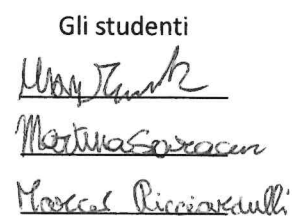 Gli studenti
Martina Saracen
Marcel Ricciardulli